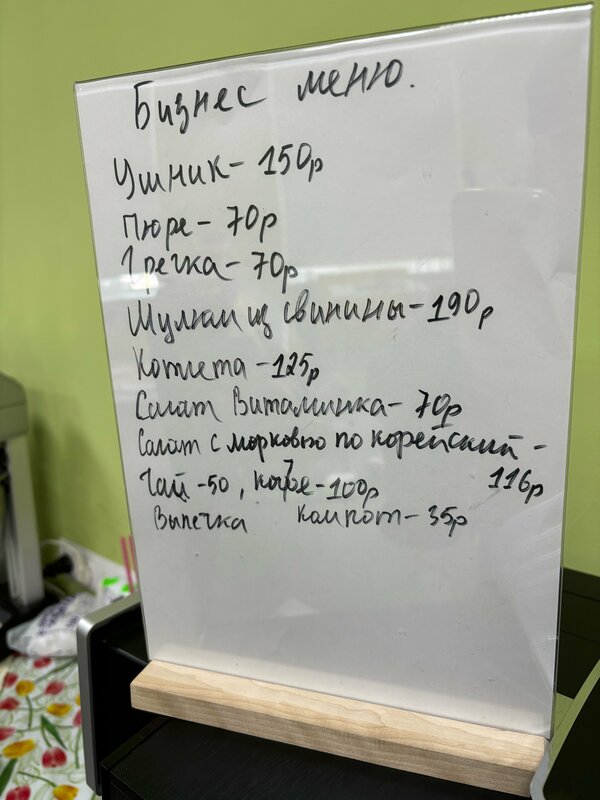 Бизнес меню.
Ушник - 150р
Пюре - 70р
Гречка - 70р
Шулюм из свинины - 190р
Котлета - 125р
Салат Витаминка - 70р
Салат с морковью по корейский -
116р
Чай - 50, кофе - 100р
Выпечка Компот - 35р